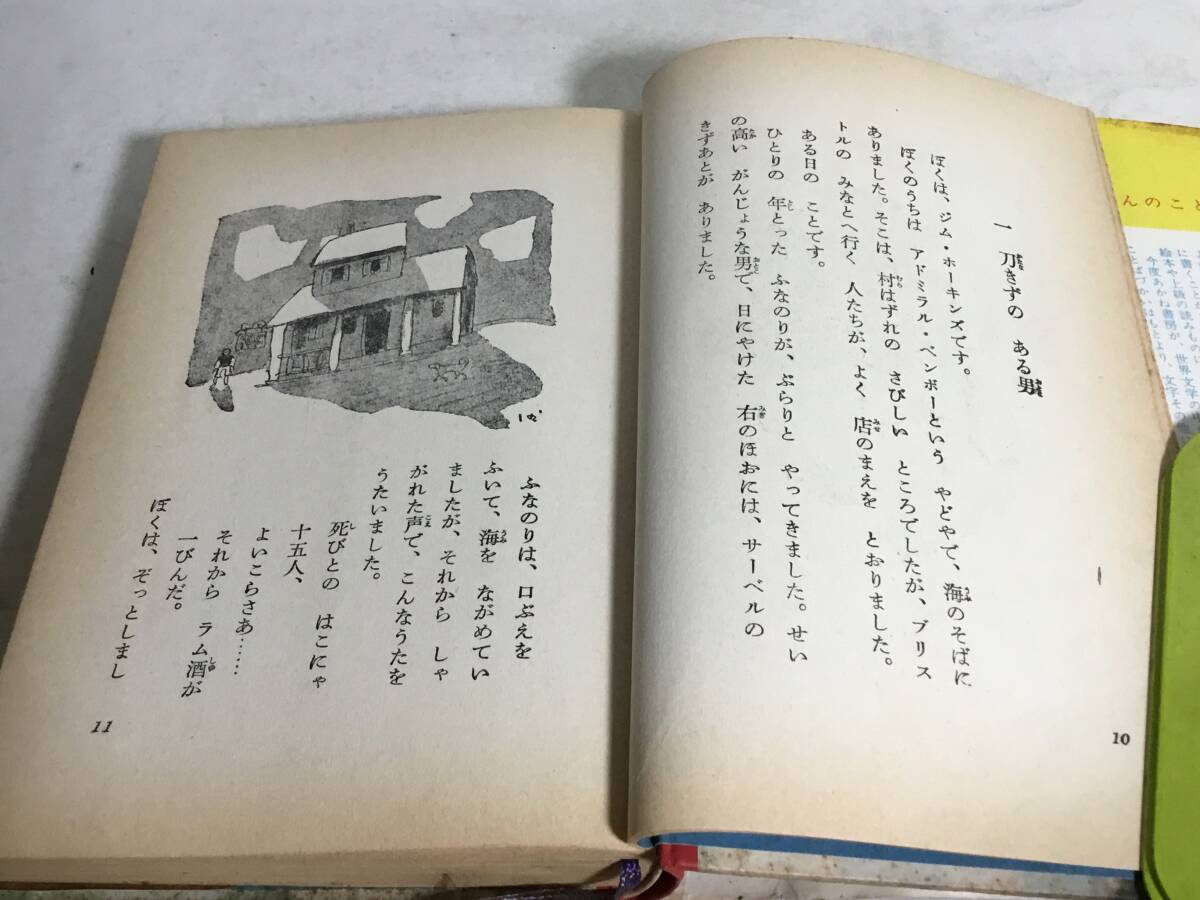 一 刀きずの ある男
ぼくは、ジム・ホーキンズです。
ぼくのうちは アドミラル・ベンボーという やどやで、海のそばに
ありました。そこは、村はずれの さびしい ところでしたが、ブリス
トルの みなとへ行く 人たちが、よく 店のまえを とおりました。
ある日の ことです。
ひとりの 年とった ふなのりが、ぶらりと やってきました。せい
の高い がんじょうな男で、日にやけた 右のほおには、サーベルの
きずあとが ありました。
10
ふなのりは、口ぶえを
ふいて、海を ながめてい
ましたが、それから しゃ
がれた声で、こんなうたを
うたいました。
死びとの はこにゃ
十五人、
よいこらさあ……
それから ラム酒が
一びんだ。
ぼくは、ぞっとしまし
11
んのこと
に書く
絵本や上級の読みもの
今度あかね書房が、世界文学の